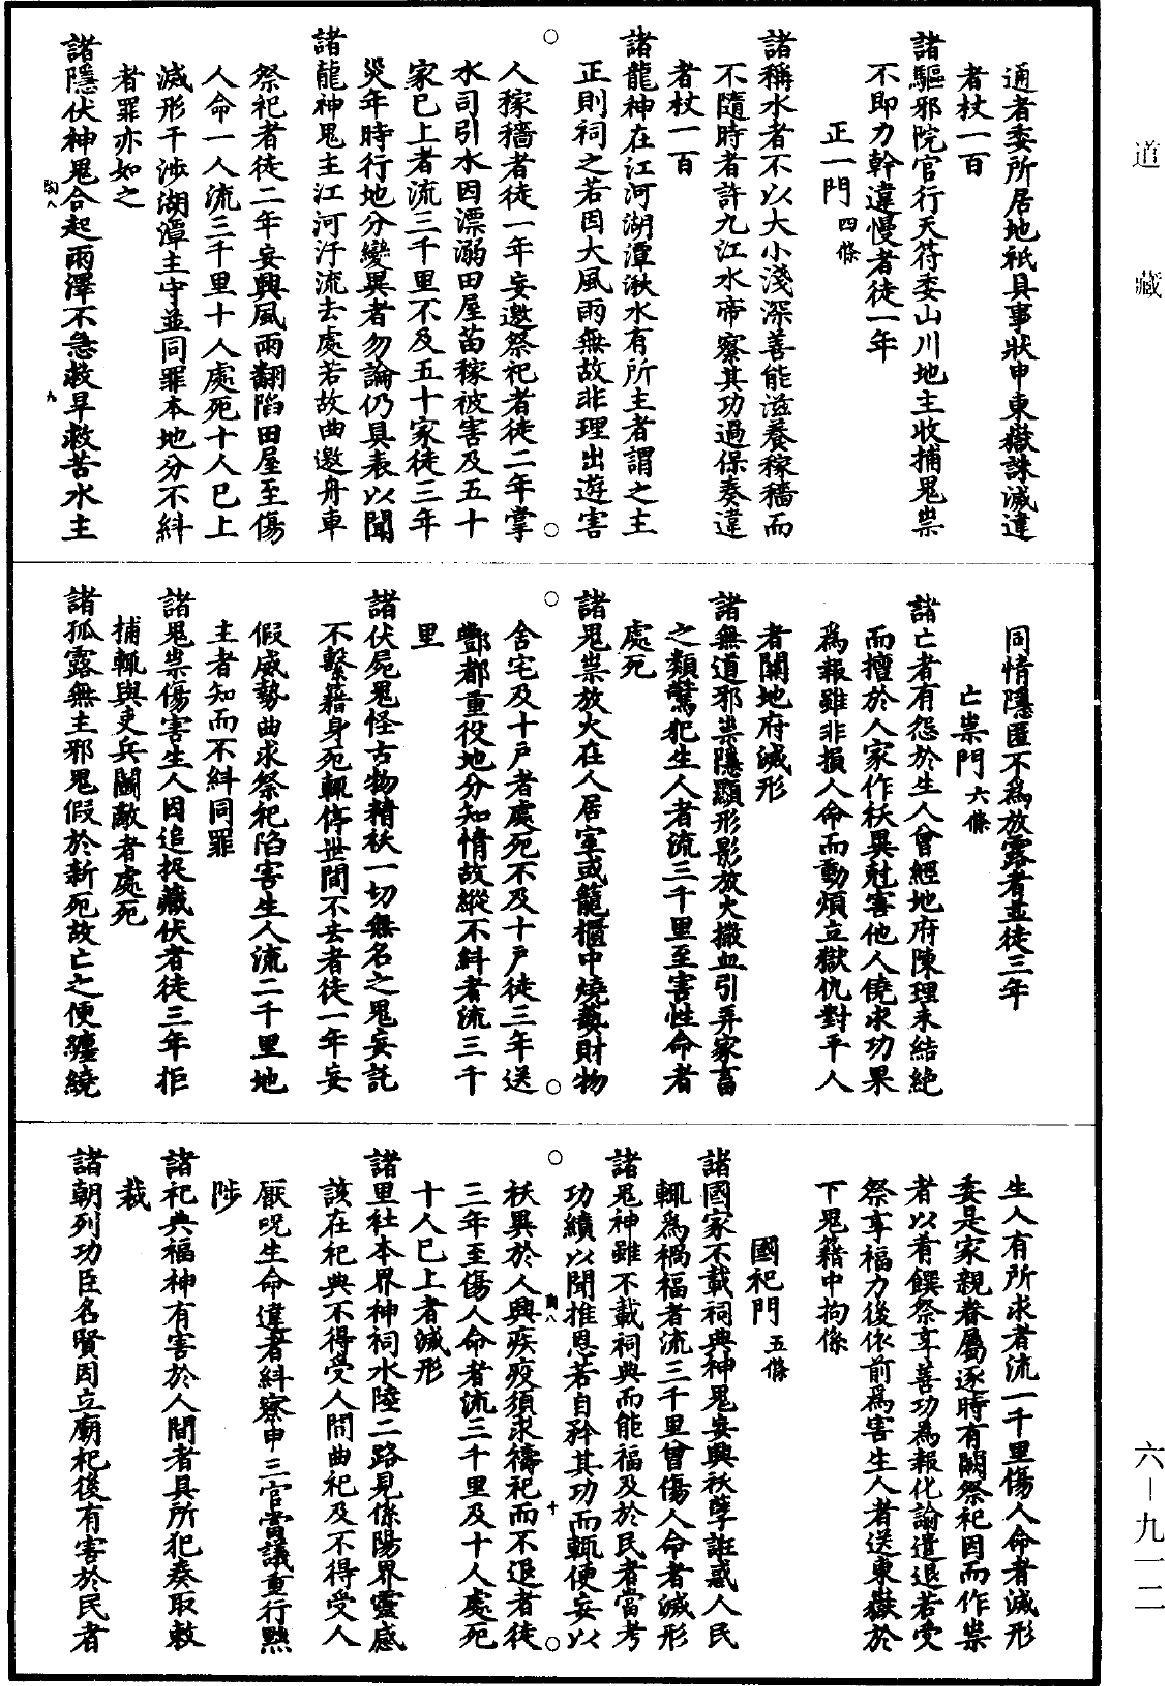 道藏
六－九一二
通者委所居地祇具事狀申東嶽誅滅違
者杖一百
諸驅邪院官行天符委山川地主收捕鬼祟
不即力幹違慢者徒一年
正一門四條
諸稱水者不以大小淺深善能滋養稼穡而
不隨時者許九江水帝察其功過保奏違
者杖一百
諸龍神在江河湖潭湫水有所主者謂之主
正則祠之若因大風雨無故非理出遊害
人稼穡者徒一年妄邀祭祀者徒二年掌
水司引水因漂溺田屋苗稼被害及五十
家已上者流三千里不及五十家徒三年
災年時行地分變異者勿論仍具表以聞
諸龍神鬼主江河汙流去處若故曲邀舟車
祭祀者徒二年妄興風雨翻陷田屋至傷
人命一人流三千里十人處死十人已上
滅形干涉湖潭主守並同罪本地分不糾
者罪亦如之
諸隱伏神鬼合起雨澤不急救旱救苦水主
陶八
九
同情隱匿不為放露者並徒三年
亡祟門六條
諸亡者有怨於生人曾經地府陳理未結絶
而擅於人家作祅異尅害他人僥求功果
為報雖非損人命而動煩立獄仇對平人
者關地府滅形
諸無道邪祟隱顯形影放火撒血引弄家畜
之類驚犯生人者流三千里至害性命者
處死
諸鬼祟放火在人居室或籠櫃中燒爇財物
舍宅及十戸者處死不及十戸徒三年送
酆都重役地分知情故縱不糾者流三千
里
諸伏屍鬼怪古物精祅一切無名之鬼妄託
不繫籍身死輒停世間不去者徒一年妄
假威勢曲求祭祀陷害生人流二千里地
主者知而不糾同罪
諸鬼祟傷害生人因追捉藏伏者徒三年拒
捕輒與吏兵鬭敵者處死
諸孤露無主邪鬼假於新死故亡之便纏繞
生人有所求者流一千里傷人命者滅形
委是家親眷屬逐時有闕祭祀因而作祟
者以肴饌祭享善功為報化諭遣退若受
祭享福力後依前為害生人者送東嶽於
下鬼籍中拘係
國祀門五條
諸國家不載祠典神鬼妄興祅孽誑惑人民
輒為禍福者流三千里曾傷人命者滅形
諸鬼神雖不載祠典而能福及於民者當考
功績以聞推恩若自矜其功而輒便妄以
陶八
十
祅異於人興疾疫須求禱祀而不退者徒
三年至傷人命者流三千里及十人處死
十人已上者滅形
諸里社本界神祠水陸二路見係陽界靈感
該在祀典不得受人間曲祀及不得受人
厭呪生命違者糾察申三官當議重行黜
陟
諸祀典福神有害於人間者具所犯奏取敕
裁
諸朝列功臣名賢因立廟祀後有害於民者